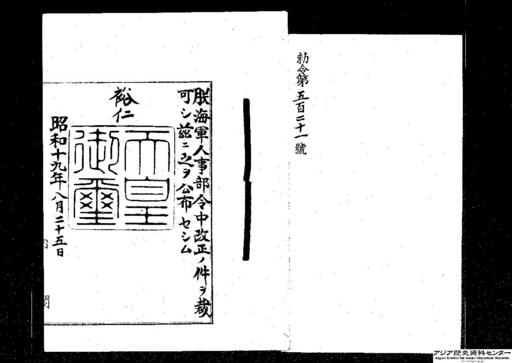 勅令第五百二十一號
朕海軍人事部令中改正ノ件ヲ裁
可シ茲ニ之ヲ公布セシム
裕仁
天皇
御璽
昭和十九年八月二十五日
アジア歴史資料センター
Japan Center for Asian Historical Records